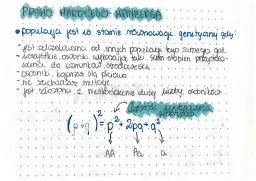 PRAWO HARDY'EGO-WEINBERGA
• populacja jest w stanie równowagi genetycznej gdy:
- jest od innych populacji tego samego gat.
- wszystkie osobniki taki sam stopień
do warunków środowiska
- osobniki kojarzą się płciowo
- nie zachodzą mutacje
- jest złożona z nieskończenie dużej liczby osobników
(p+q)²= p²+2pq+q²
AA Aa a